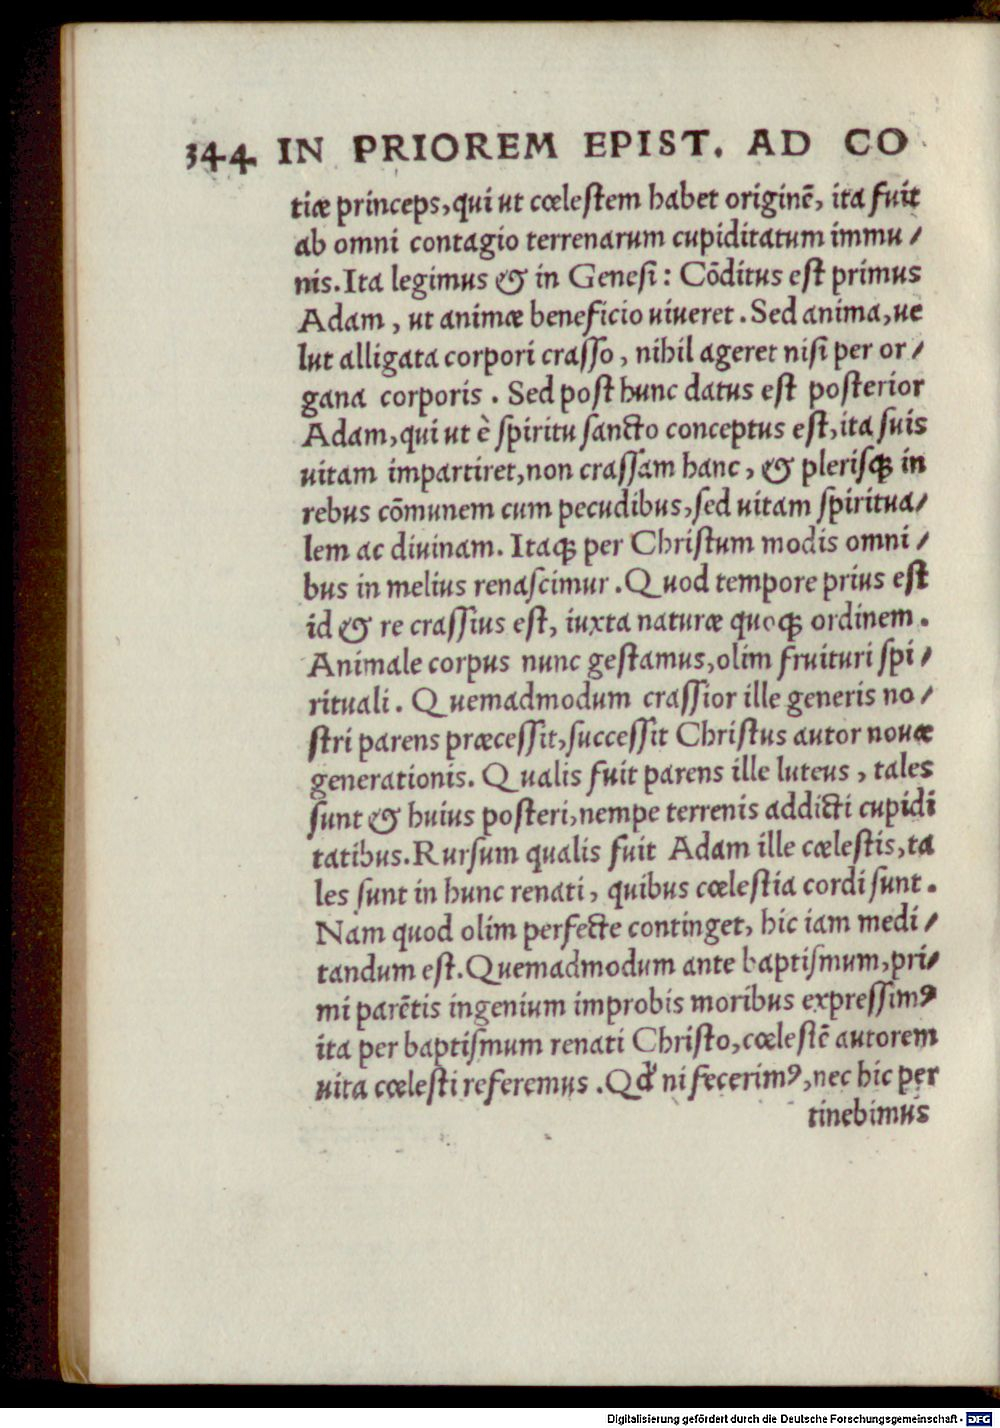 344 IN PRIOREM EPIST. AD CO
tiæ princeps, qui ut cœleſtem habet originē, ita fuit
ab omni contagio terrenarum cupiditatum immu /
nis. Ita legimus & in Geneſi : Cōditus eſt primus
Adam , ut animæ beneficio uiueret . Sed anima, ue
lut alligata corpori craſſo , nihil ageret niſi per or /
gana corporis . Sed poſt hunc datus eſt poſterior
Adam, qui ut è ſpiritu ſancto conceptus eſt, ita ſuis
uitam impartiret, non craſſam hanc , & pleriſq; in
rebus cōmunem cum pecudibus, ſed uitam ſpiritua/
lem ac diuinam. Itaq; per Chriſtum modis omni /
bus in melius renaſcimur . Quod tempore prius eſt
id & re craſſius eſt, iuxta naturæ quoq; ordinem .
Animale corpus nunc geſtamus, olim fruituri ſpi /
rituali . Quemadmodum craſſior ille generis no /
ſtri parens præceſſit, ſucceſſit Chriſtus autor nouæ
generationis. Qualis fuit parens ille luteus , tales
ſunt & huius poſteri, nempe terrenis addicti cupidi
tatibus. Rurſum qualis fuit Adam ille cœleſtis, ta
les ſunt in hunc renati , quibus cœleſtia cordi ſunt .
Nam quod olim perfecte continget, hic iam medi /
tandum eſt. Quemadmodum ante baptiſmum, pri/
mi parētis ingenium improbis moribus expreſſimꝰ
ita per baptiſmum renati Chriſto, cœleſtē autorem
uita cœleſti referemus . Qđ ni fecerimꝰ, nec hic per
tinebimus
Digitalisierung gefördert durch die Deutsche Forschungsgemeinschaft - DFG